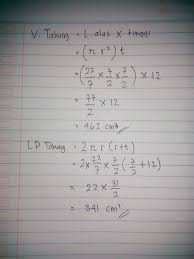 V. Tabung = L. alas x tinggi
= (π r²) t
= (22/7 x 7/2 x 7/2) x 12
= 77/2 x 12
= 462 cm³
LP Tabung = 2 π r (r+t)
= 2 x 22/7 x 7/2 (7/2 + 12)
= 22 x 31/2
= 341 cm²